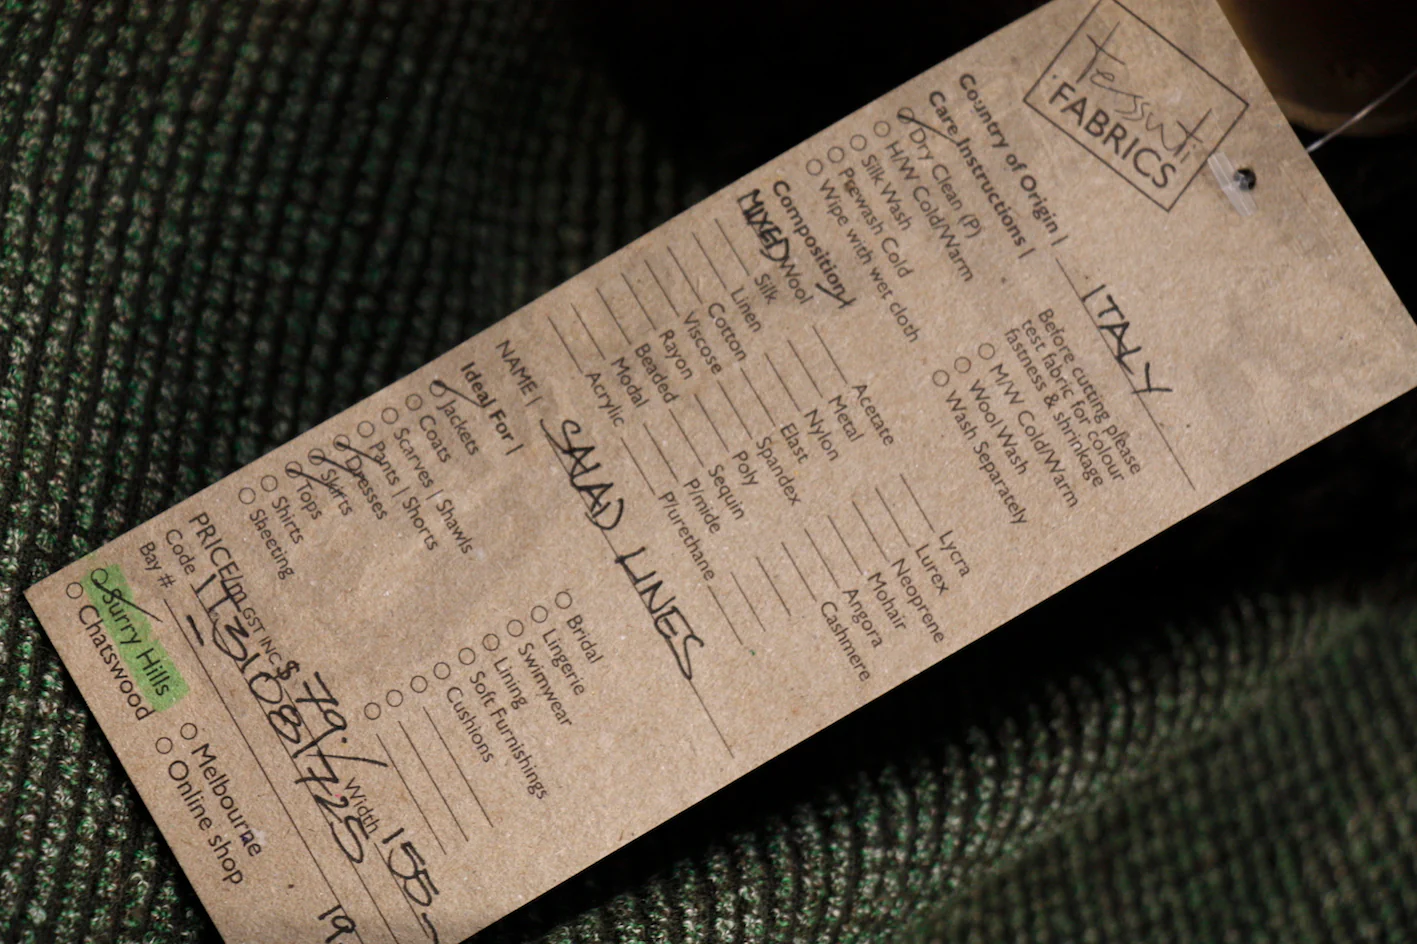 tessuti
FABRICS
Country of Origin | ITALY
Care Instructions |
Dry Clean (P)
H/W Cold/Warm
Silk Wash
Prewash Cold
Wipe with wet cloth
Before cutting please
test fabric for colour
fastness & shrinkage
M/W Cold/Warm
Wool Wash
Wash Separately
Composition |
MIXED Wool
Silk
Linen
Cotton
Viscose
Rayon
Beaded
Modal
Acrylic
Acetate
Metal
Nylon
Elast
Spandex
Poly
Sequin
P/mide
P/urethane
Lycra
Lurex
Neoprene
Mohair
Angora
Cashmere
NAME | SALAD LINES
Ideal For |
Jackets
Coats
Scarves | Shawls
Pants | Shorts
Dresses
Skirts
Tops
Shirts
Sheeting
Bridal
Lingerie
Swimwear
Lining
Soft Furnishings
Cushions
PRICE/m GST INC $ 79.- Width 155
Code IT31081725
Bay # - 19
Surry Hills
Chatswood
Melbourne
Online shop